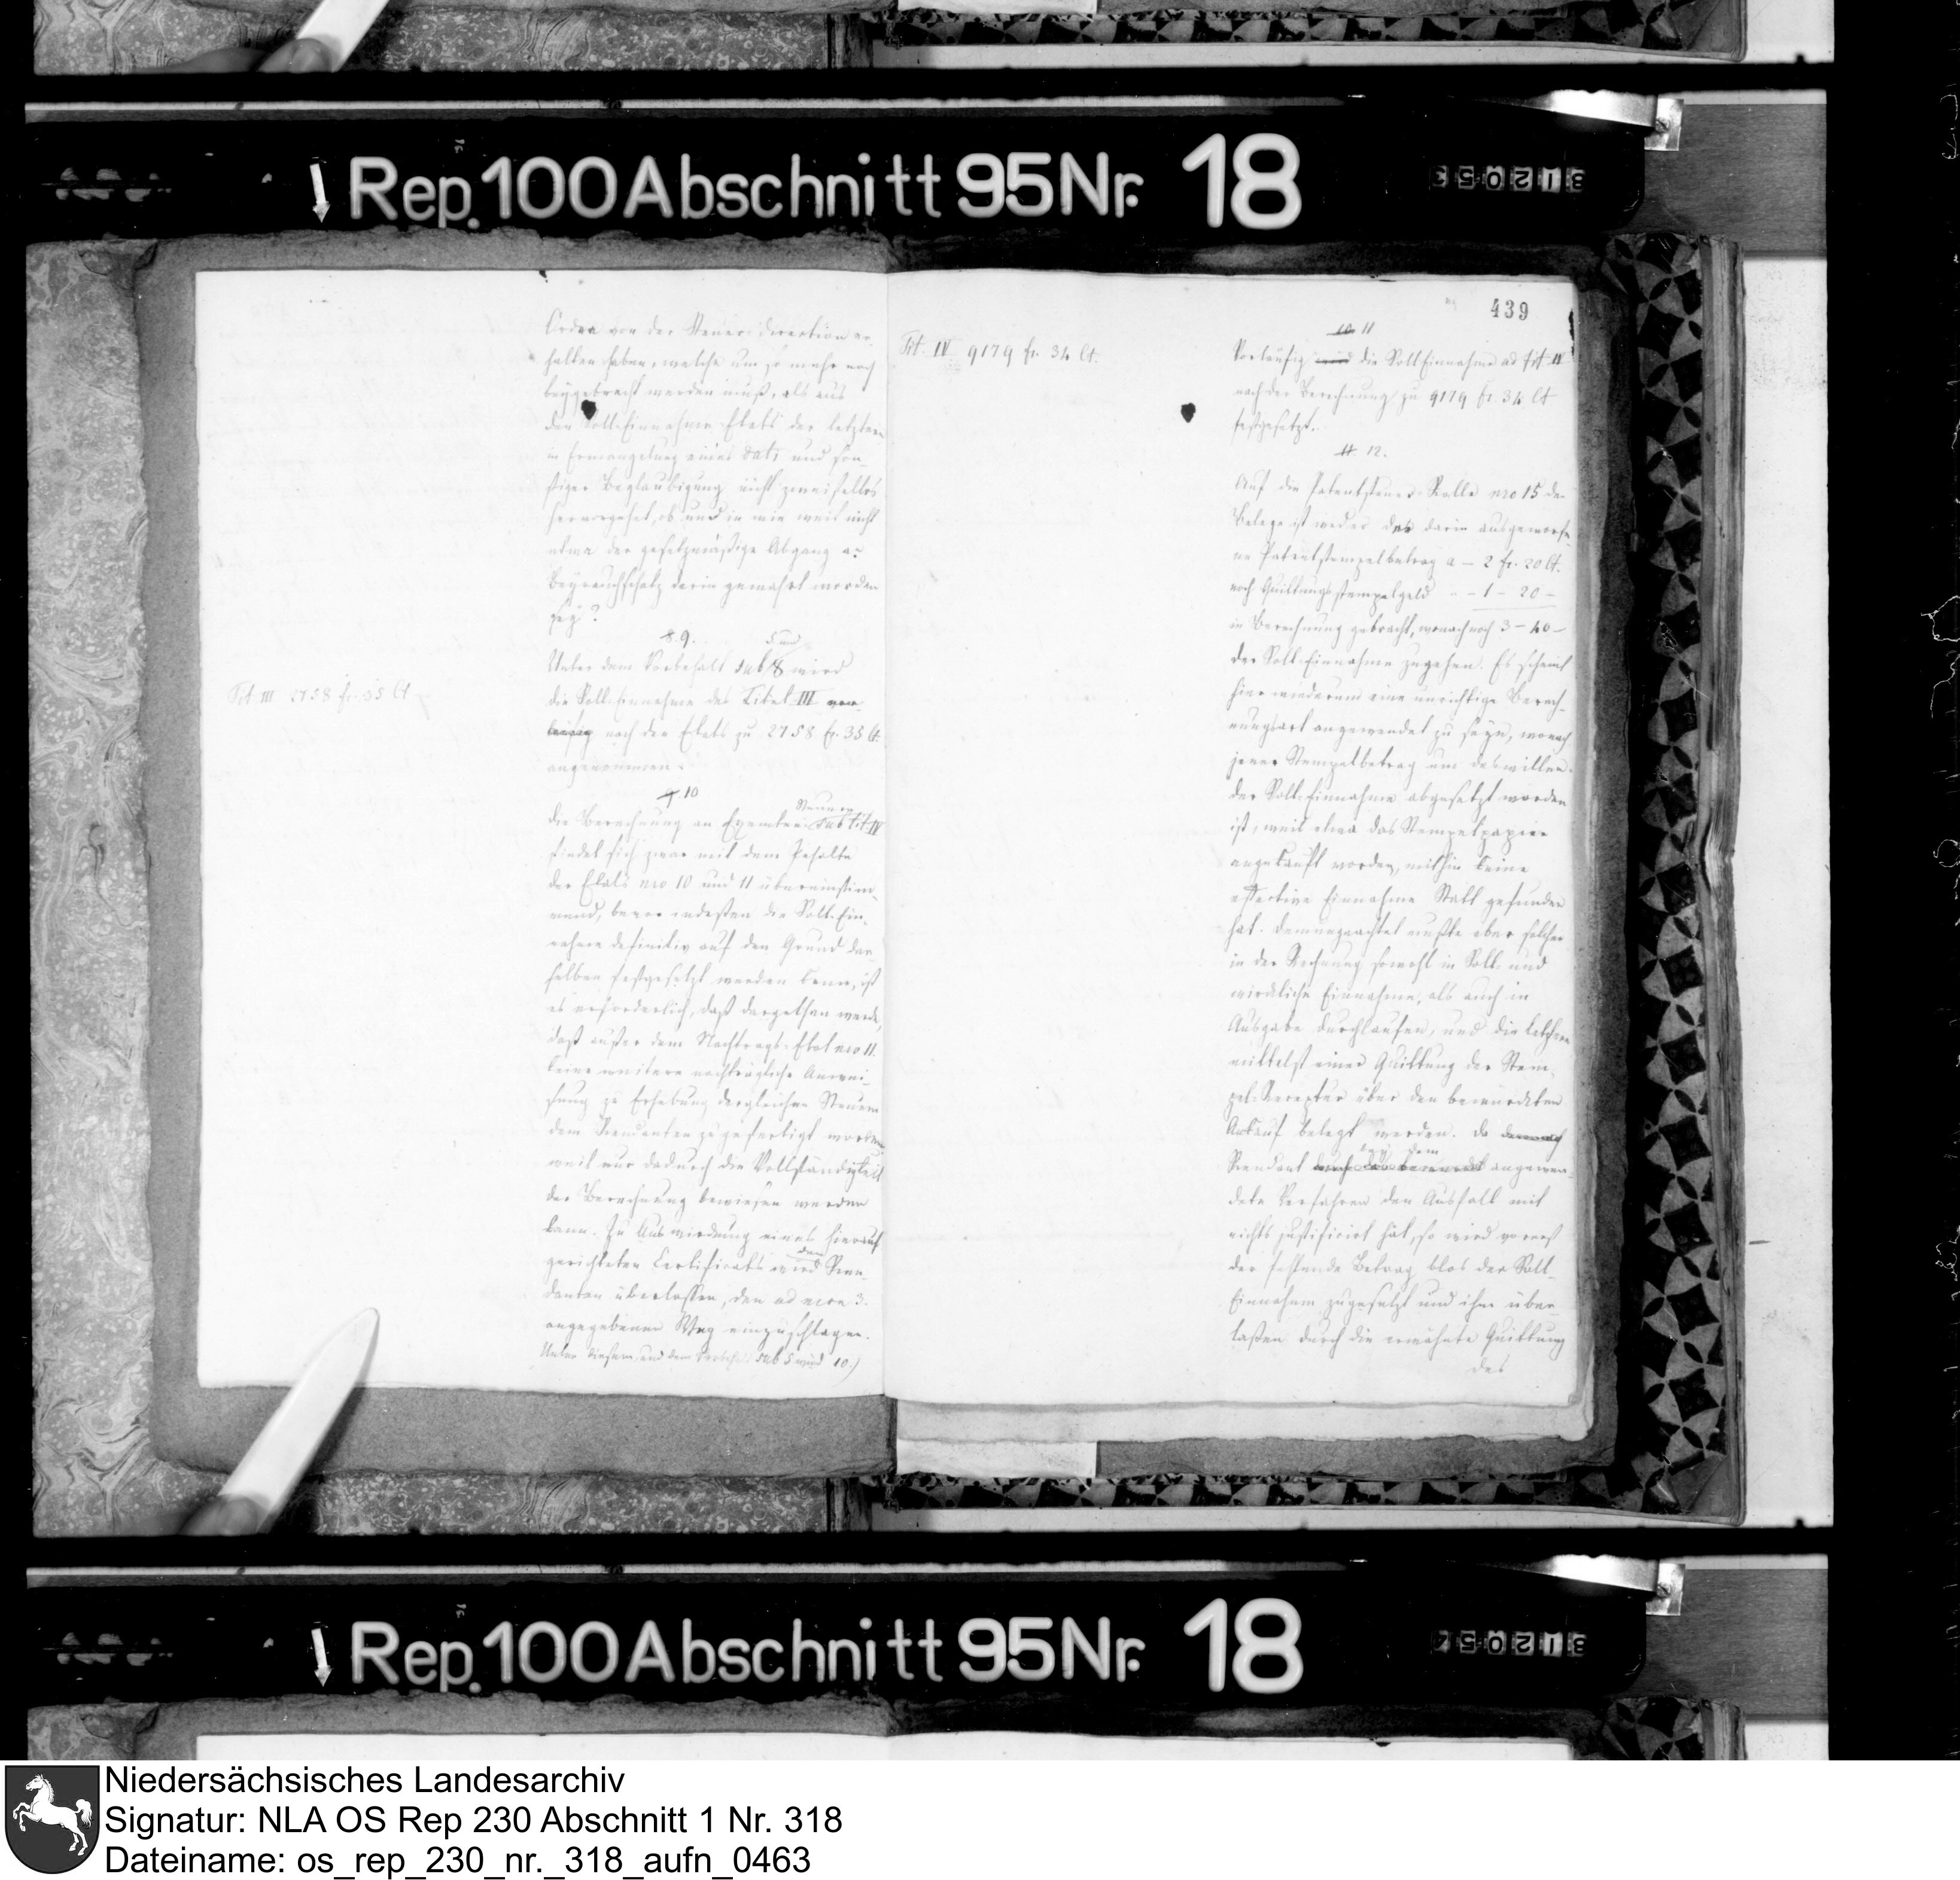 Rep. 100 Abschnitt 95 Nr. 18
312053
Ordre von der Steuer-direction er-
halten haben, welche um so mehr noch
beygebracht werden muß, als aus
den Soll-Einnahme Etats der letztern
in Ermangelung eines dati und son-
stiger Beglaubigung nicht zweifellos
hervorgehet, ob und in wie weit nicht
etwa der gesetzmäßige Abgang an
darin gewahrt worden
sey?
8. 9.
5 und
Unter dem Vorbehalt sub 8 wird
die Soll-Einnahme des Titel III vor-
läufig nach den Etats zu 2758 fr. 35 Ct.
angenommen.
Tit III 2758 fr. 35 Ct
9 10
Steuern
die Berechnung an sub tit IV
findet sich zwar mit dem Inhalte
der Etats nro 10 und 11 übereinstim-
mend, bevor indessen die Soll-Ein-
nahme definitiv auf den Grund der-
selben festgesetzt werden kann, ist
es erforderlich, daß dargethan werde,
daß außer dem Nachtrags-Etat nro 11.
keine weitere nachträgliche Anwei-
sung zu Erhebung dergleichen Steuern
dem Rendanten zugefertigt worden
weil nur dadurch die Vollständigkeit
der Berechnung bewiesen werden
kann. Zu Auswirkung eines hierauf
gerichteten Certificats wird dem Ren-
danten überlassen, den ad nrum 3.
angegebenen Weg einzuschlagen.
Unter diesem und dem Vorbehalt sub 5 wird 10.)
439
Tit. IV 9179 fr. 34 Ct.
10 11
Vorläufig wird die Soll-Einnahme ad tit IV
nach der Berechnung zu 9179 fr. 34 Ct
festgesetzt.
11. 12.
Auf die Patentsteuer-Rolle nro 15 der
Belege ist weder der darin ausgeworfe-
ne Patentstempelbetrag a - 2 fr. 20 Ct.
noch Quittungsstempelgeld - 1 - 20 -
in Berechnung gebracht, wonach noch 3 - 40 -
der Soll-Einnahme zugehen. Es scheint
hier wiederum eine unrichtige Berech-
nungsart angewendet zu seyn, wonach
jener Stempelbetrag um deswillen
der Soll-Einnahme abgesetzt worden
ist, weil etwa das Stempelpapier
angekauft worden, mithin keine
effective Einnahme Statt gefunden
hat. demungeachtet mußte aber solcher
in der Rechnung sowohl in Soll- und
wirkliche Einnahme, als auch in
Ausgabe durchlaufen, und die letztere
mittelst einer Quittung der Stem-
pel-Receptur über den bewirkten
Ankauf belegt werden. da demnach
bey dem
Rendant durch das bemerkt angewen-
dete Verfahren den Ausfall mit
nichts justificirt hat, so wird vorerst
der fehlende Betrag blos der Soll-
Einnahm zugesetzt und ihm über-
laßen durch die erwähnte Quittung
des
Rep. 100 Abschnitt 95 Nr. 18
312054
Niedersächsisches Landesarchiv
Signatur: NLA OS Rep 230 Abschnitt 1 Nr. 318
Dateiname: os_rep_230_nr._318_aufn_0463